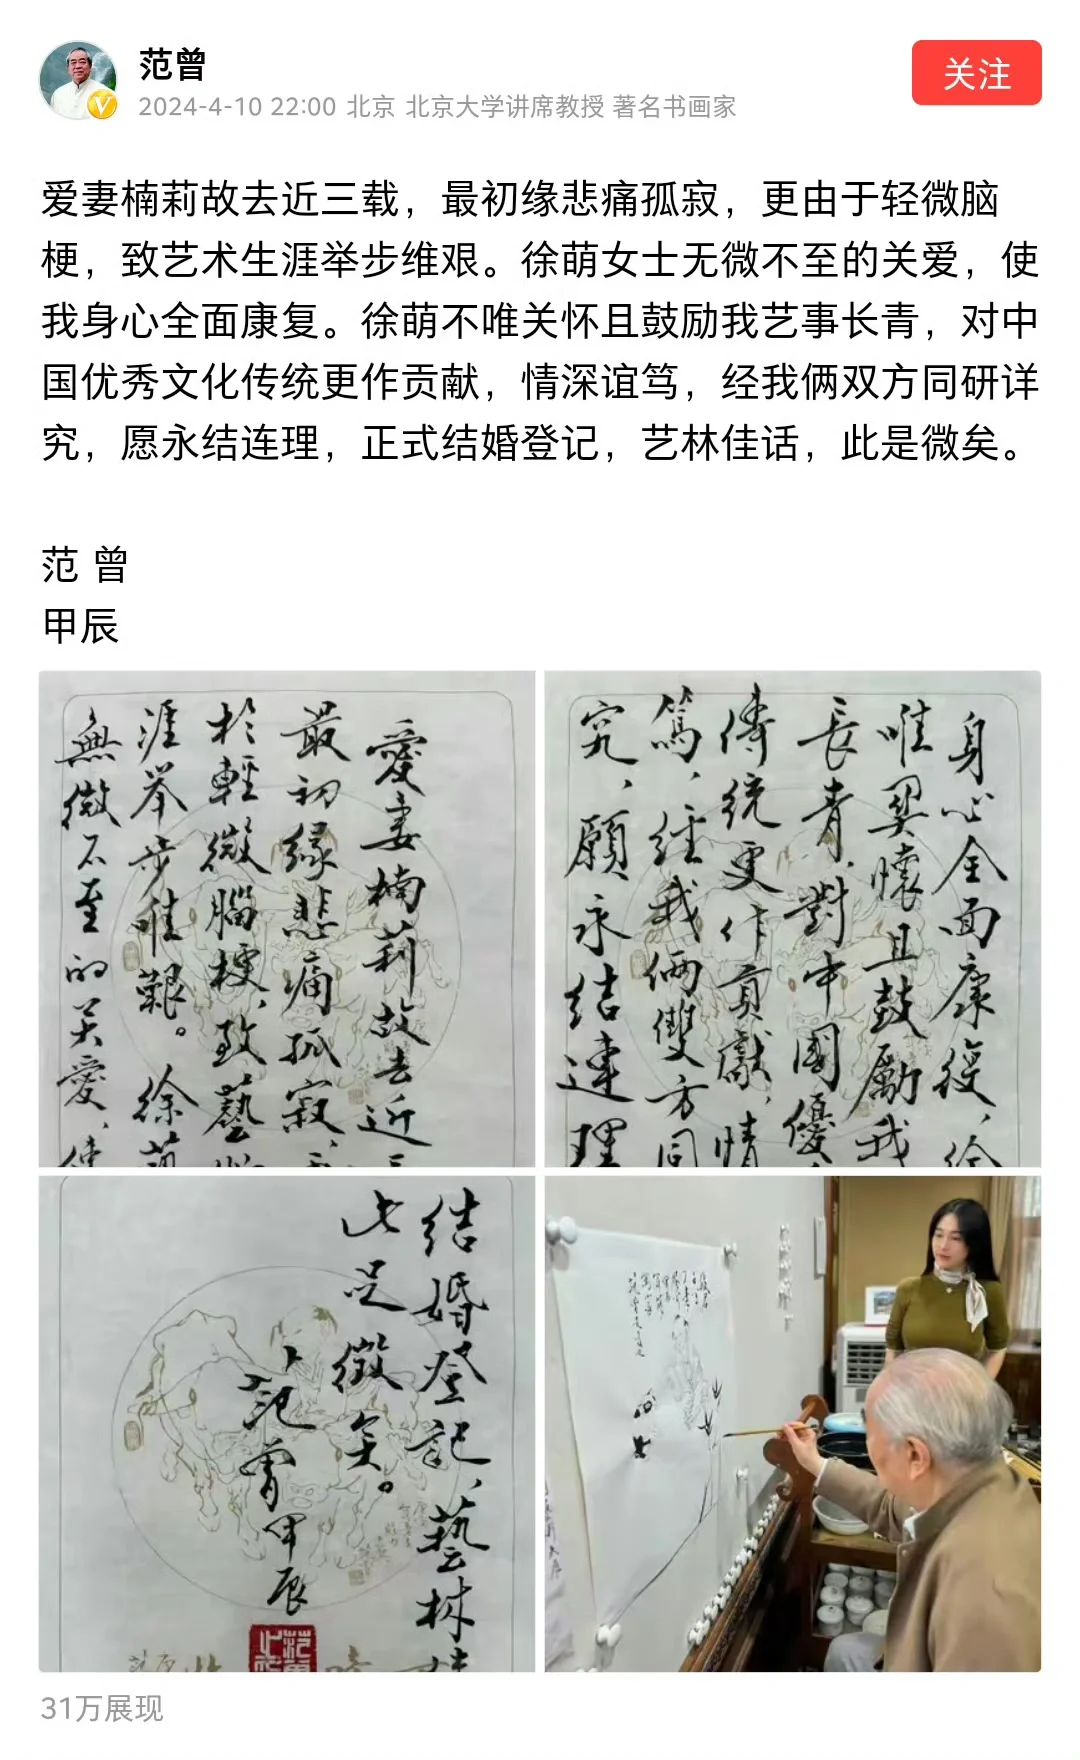 范曾
关注
2024-4-10 22:00 北京 北京大学讲席教授 著名书画家
爱妻楠莉故去近三载，最初缘悲痛孤寂，更由于轻微脑
梗，致艺术生涯举步维艰。徐萌女士无微不至的关爱，使
我身心全面康复。徐萌不唯关怀且鼓励我艺事长青，对中
国优秀文化传统更作贡献，情深谊笃，经我俩双方同研详
究，愿永结连理，正式结婚登记，艺林佳话，此是微矣。
范 曾
甲辰
愛妻楠莉故去近三
最初緣悲痛孤寂，
於輕微腦梗，致藝
涯举步惟艱。徐萌
無微不至的关愛，使
身心全面康復，徐
唯関懷且鼓勵我
長青，對中國優
傳統更作貢獻，情
篤，經我俩雙方同
究，願永结連理
结婚登記，藝林佳
此足徵矣。
范曾甲辰
31万展现